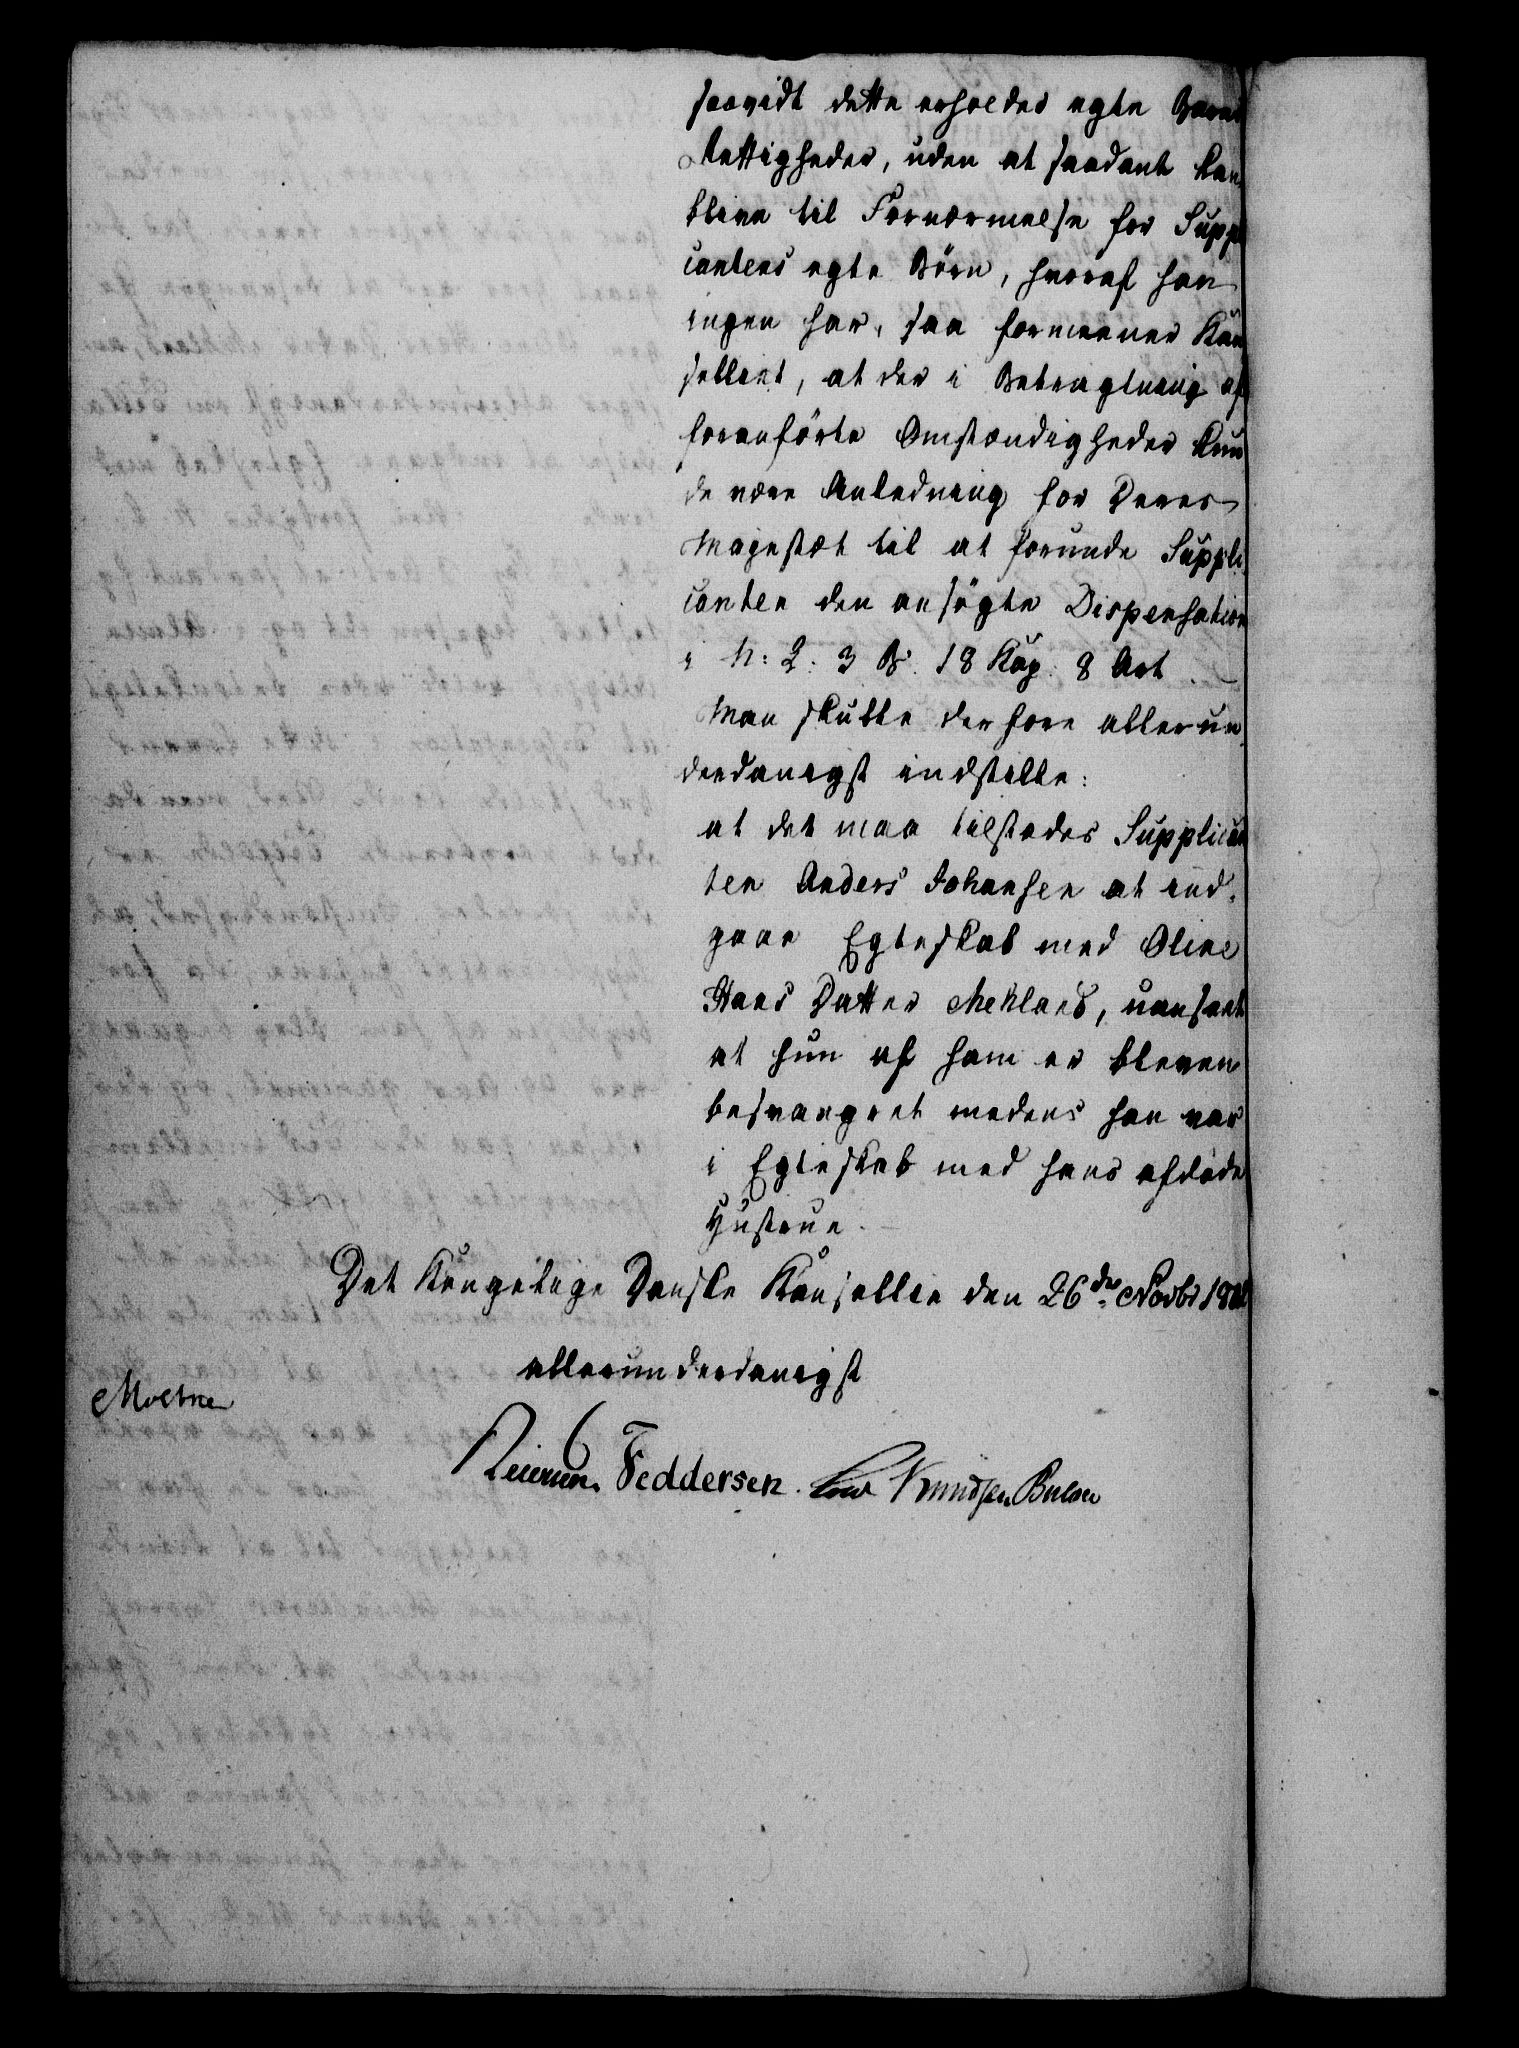 saavidt dette erholder egte Barns
Rettigheder, uden at saadant kan
blive til Fornærmelse for Suppli
cantens egte Börn, hvoraf han
ingen har, saa formeener Kan
selliet, at der i Betragtning af
foranförte Omstændigheder kun
de være Anledning for Deres
Majestæt til at forunde Suppli
canten den ansögte Dispensation
i N: L: 3 B. 18 Kap. 8 Art.
Man skulde derfore allerun
derdanigst indstille:
at det maa tilstedes Supplican
ten Anders Johansen at ind-
gaae Egteskab med Oline
Hans Datter, uanseet
at hun af ham er bleven
besvangret medens han var
i Egteskab med hans afdöde
Hustrue.
Det Kongelige Danske Kansellie den 26de Novbr
allerunderdanigst
Moltke
Feddersen. Knudsen Bülow